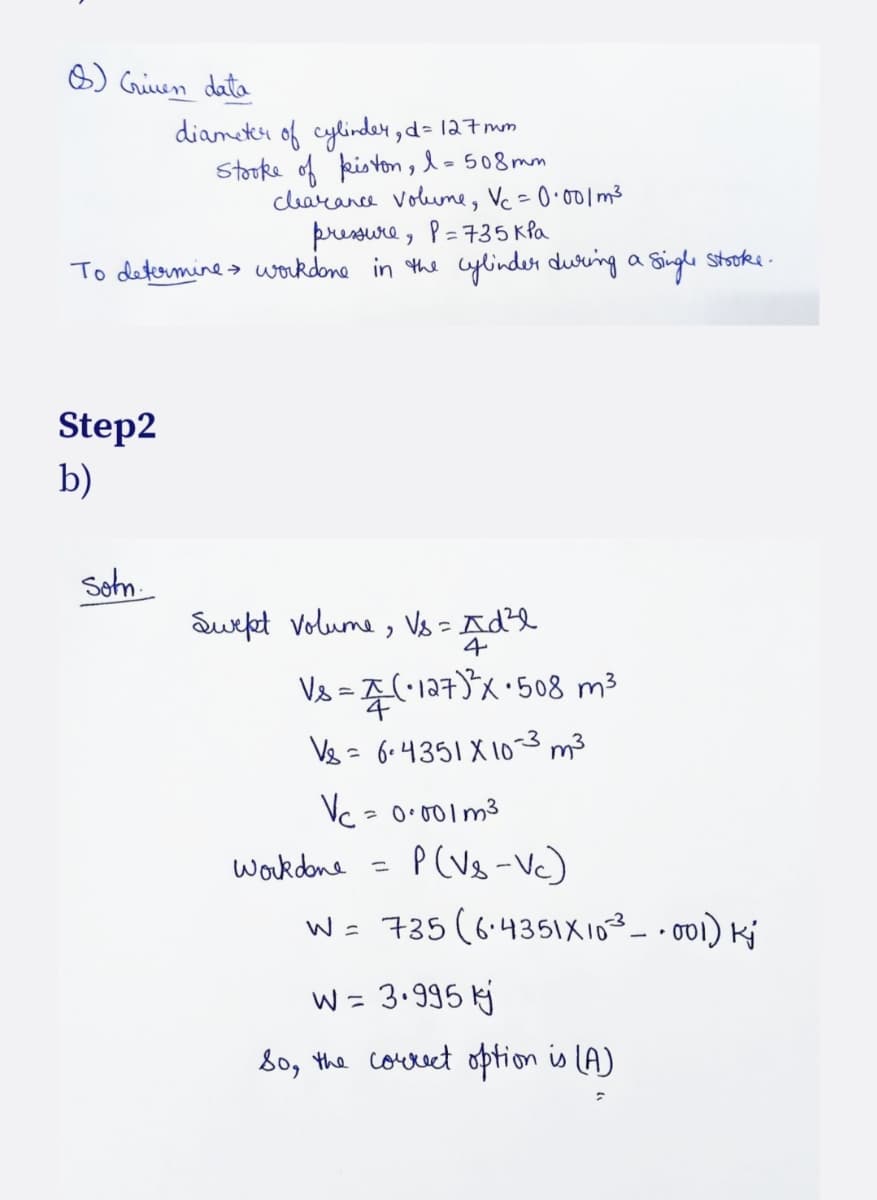 Q) Given data
diameter of cylinder, d = 127 mm
Stroke of piston, l = 508 mm
clearance volume, Vc = 0.001 m³
pressure, P = 735 KPa
To determine → workdone in the cylinder during a single stroke.
Step2
b)
Soln.
Swept volume, Vs = π/4 d²l
Vs = π/4 (.127)² x .508 m³
Vs = 6.4351 X 10⁻³ m³
Vc = 0.001 m³
Workdone = P(Vs - Vc)
W = 735 (6.4351X10⁻³ - .001) Kj
W = 3.995 kj
So, the correct option is (A)